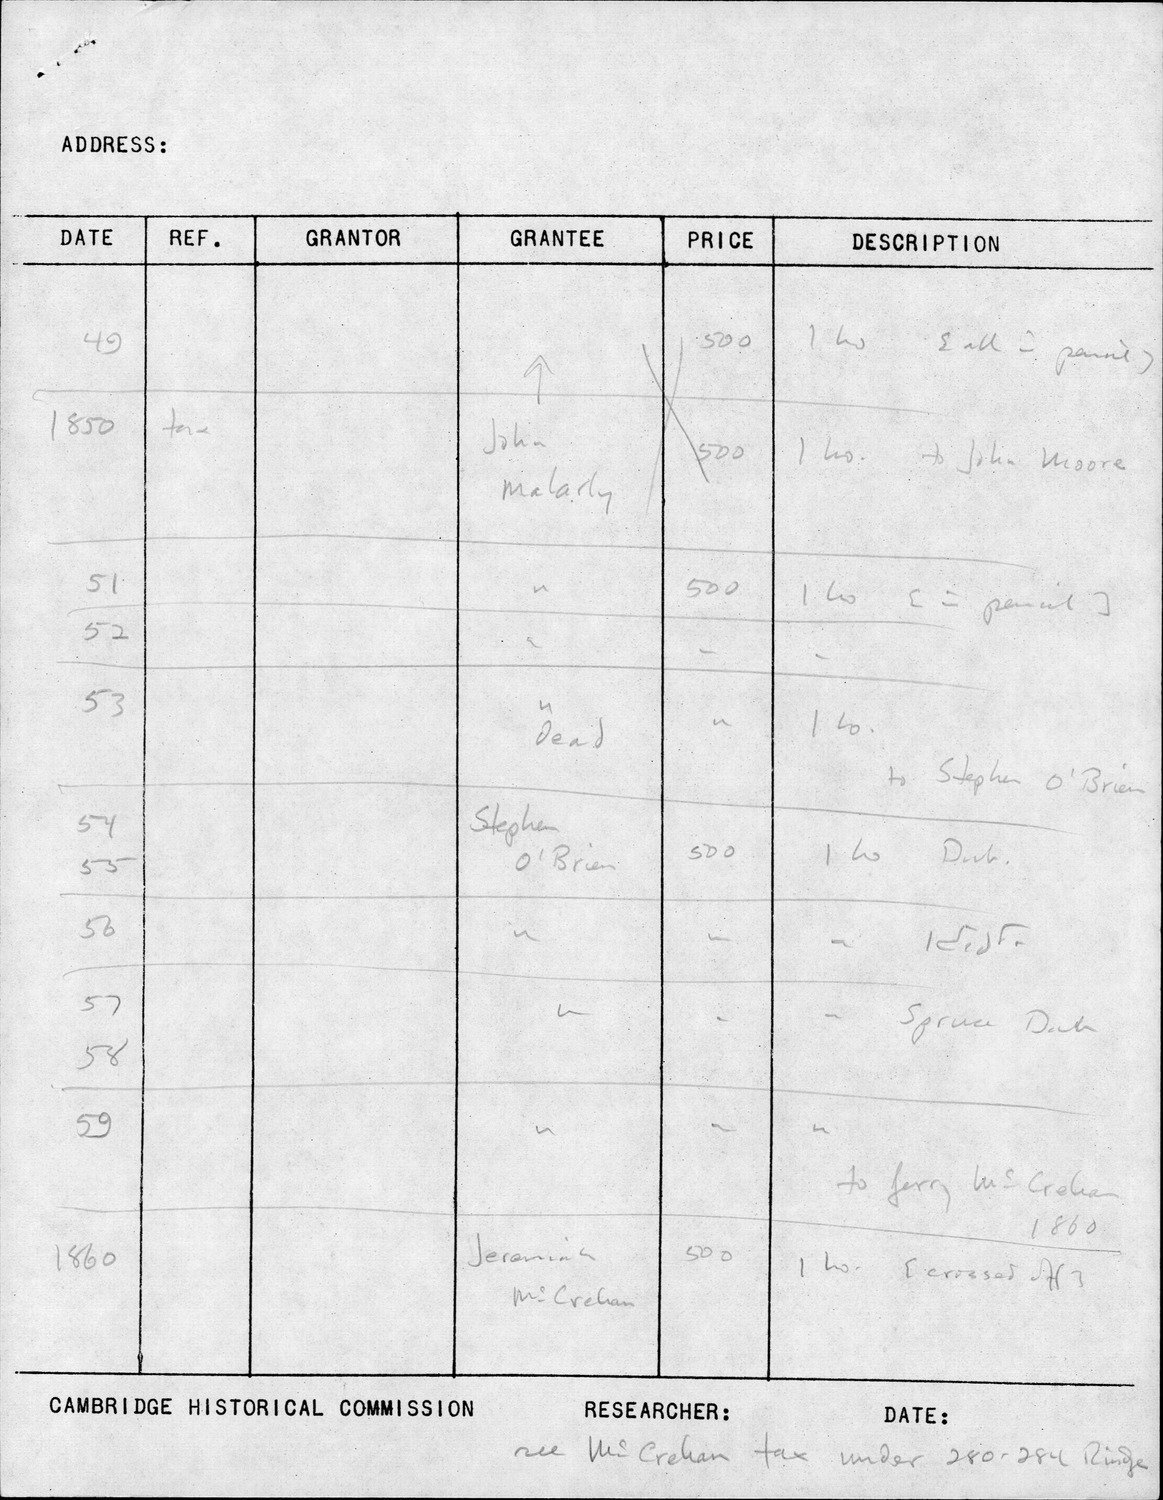 ADDRESS:
DATE REF. GRANTOR GRANTEE PRICE DESCRIPTION
49 500 1 ho [all in pencil]
1850 tax John 500 1 ho. to John Moore
Malarly
51 " 500 1 ho [in pencil]
52 " " "
53 " " 1 ho.
Dead
to Stephen O'Brien
54 Stephen
55 O'Brien 500 1 ho Dub.
56 " " "
57 " " " Spruce Dub
58
59 " " "
to Jerry McCrehan
1860
1860 Jeremiah 500 1 ho. [crossed off]
McCrehan
CAMBRIDGE HISTORICAL COMMISSION RESEARCHER: DATE:
see McCrehan tax under 280-284 Rindge